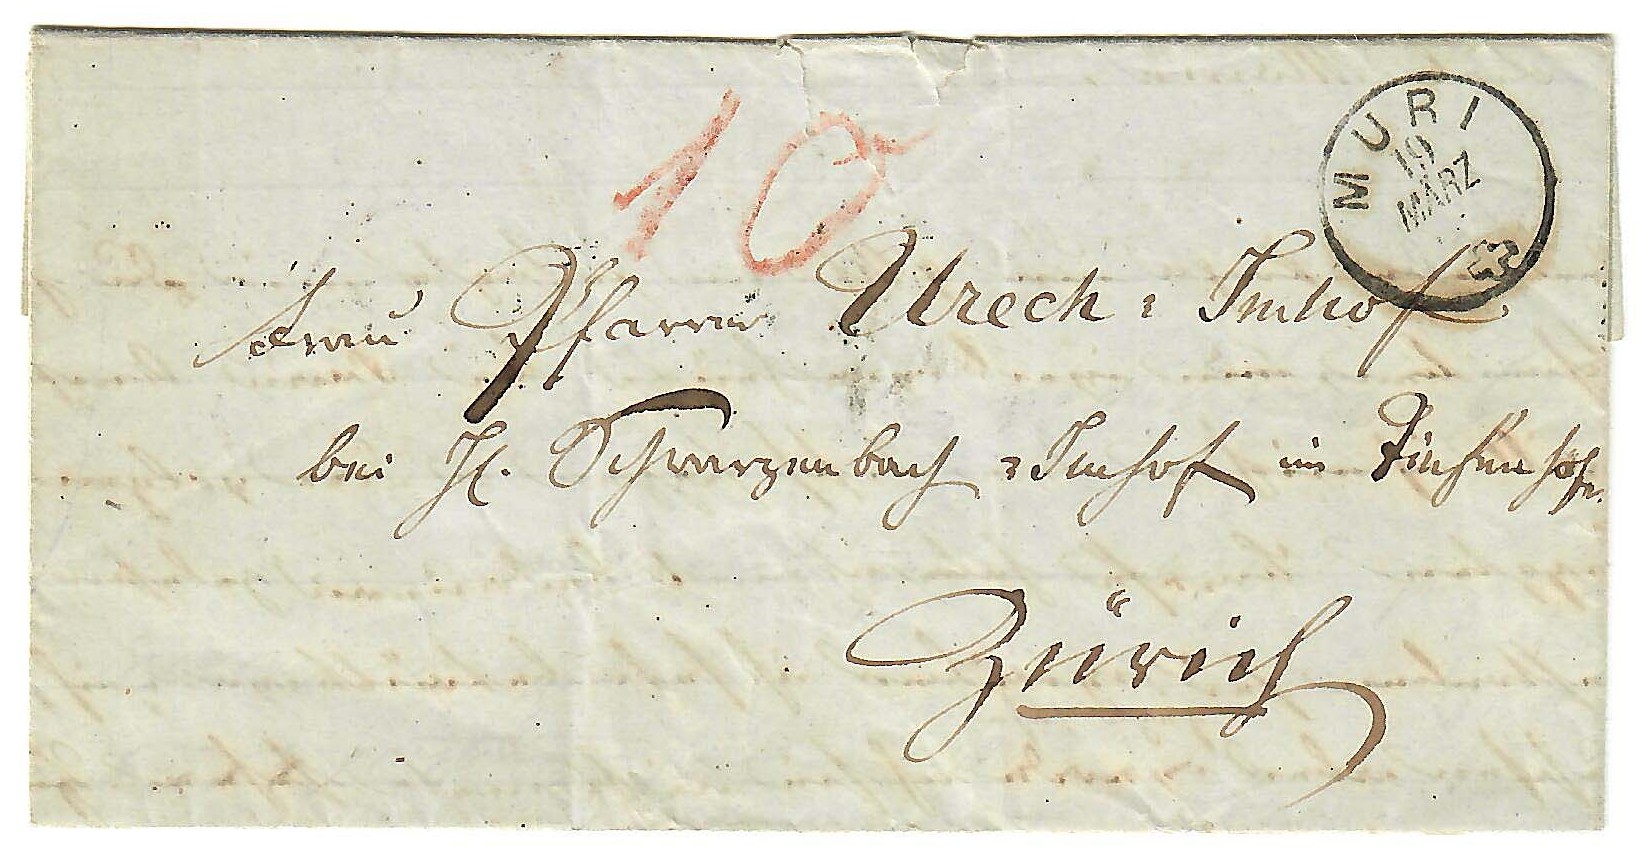 10
MURI
19
MÄRZ
Frau Pfarrer Urech = Imhof
bei H. Schwarzenbach = Imhof im
Zürich